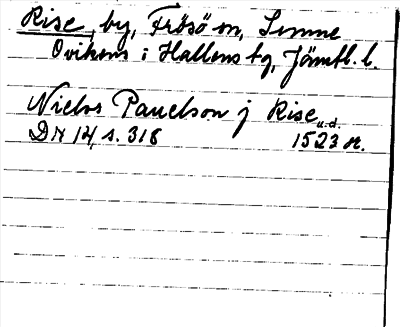 Rise, by, Frösö sn, Sunne
Ovikens i Hallens tg, Jämtl. l.
Niclos Pauelson j Rise
u.d.
DN 14, s. 318 1523 or.